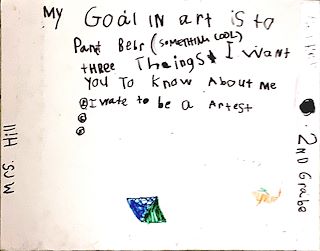 My Goal in art is to
Pant Betr (SOMETHING COOL)
three Theings I want
you To Know About me
I wate to be a Artest
Mrs. Hill
2ND Grabe